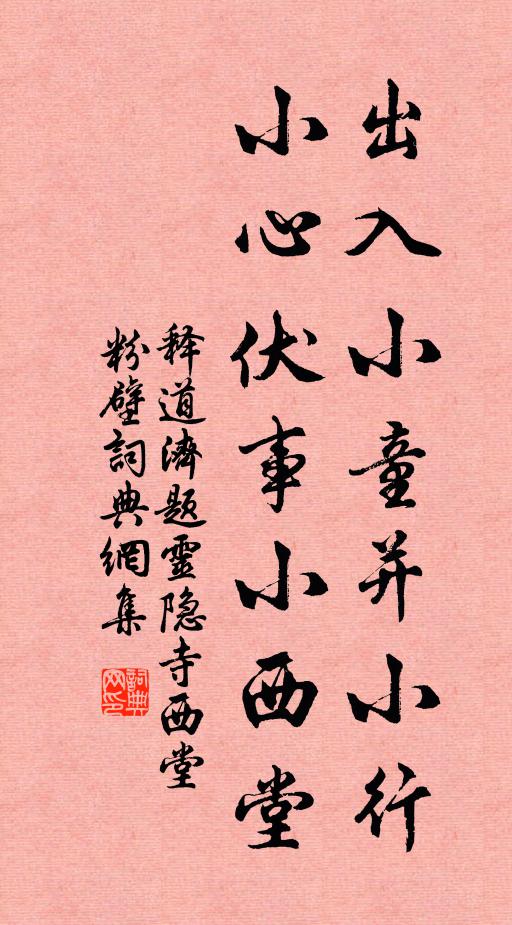 出入小童并小行
小心伏事小西堂
释道濟题靈隐寺西堂
粉壁詞典網集
詞典网印